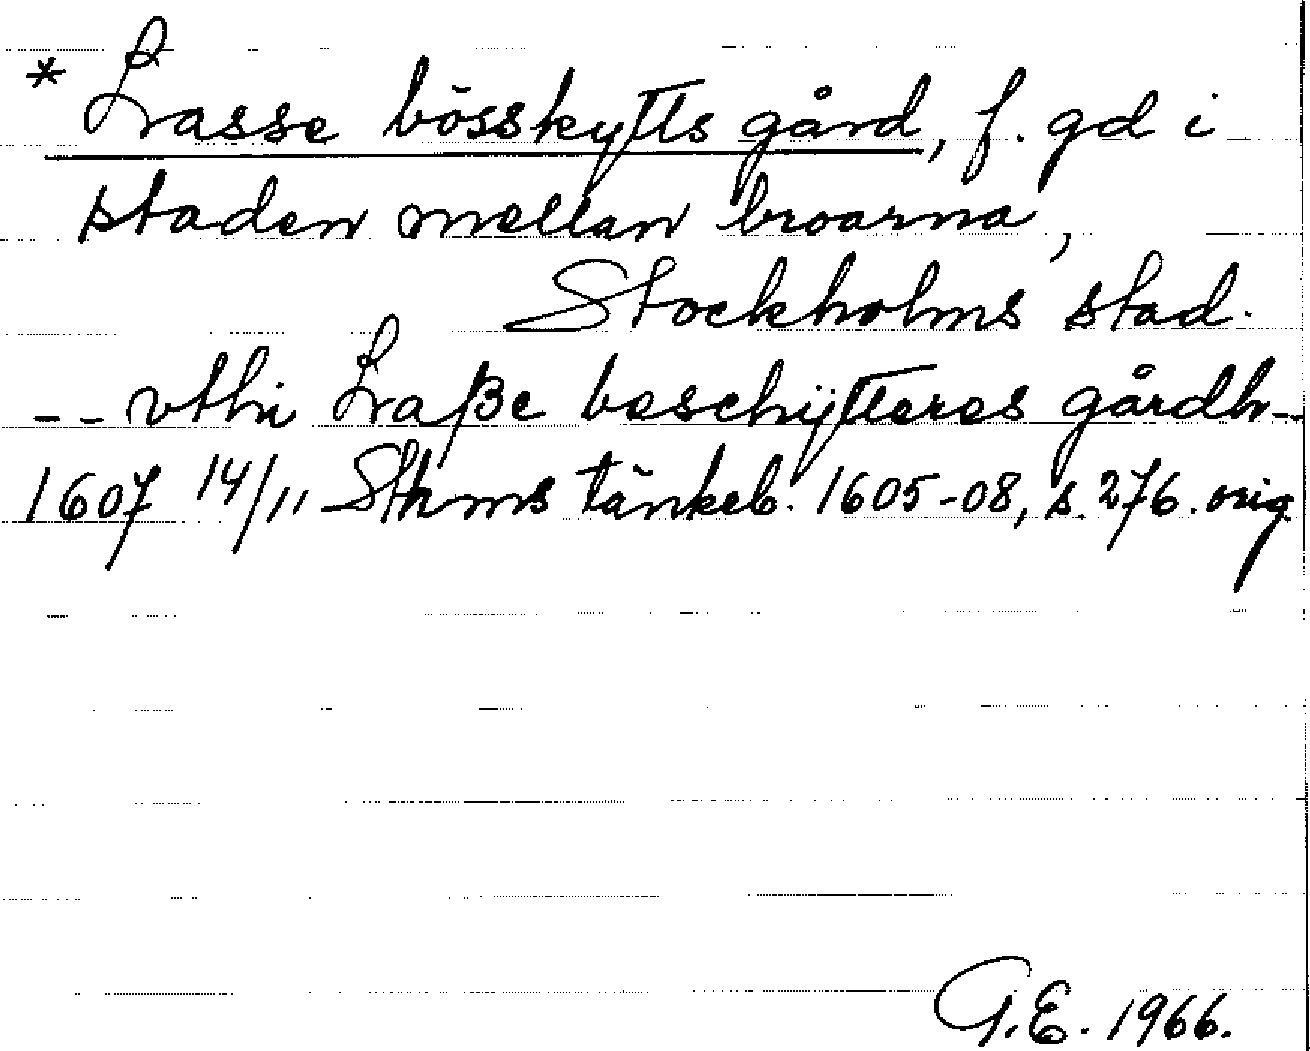 * Lasse bösskytts gård, f. gd i
staden mellan broarna,
Stockholms stad.
-- vthi Laße beschÿtteres gårdh--
1607 14/11 Sthms tänkeb. 1605-08, s. 276. orig
G.E. 1966.